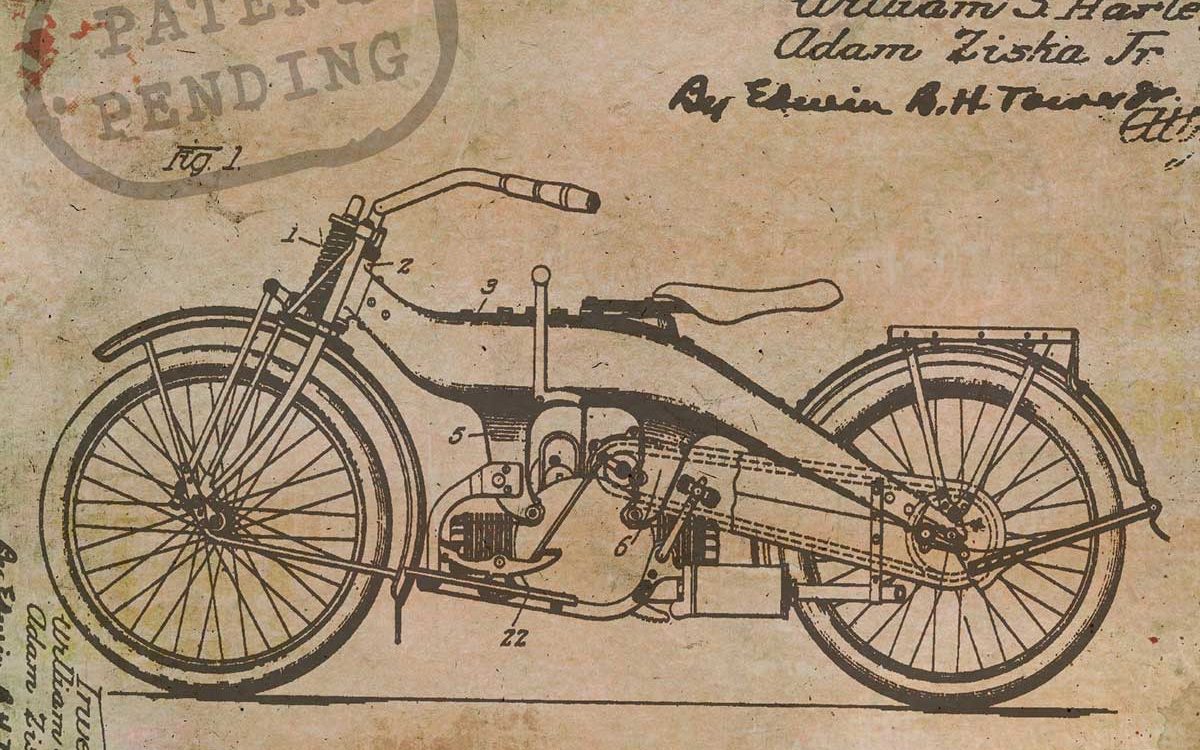 PATENT
PENDING
William S. Harle
Adam Ziska Jr
By Edwin B.H. Tower Jr.
Fig. 1.
1
2
3
5
6
22
William
Adam Zis
By Edwin